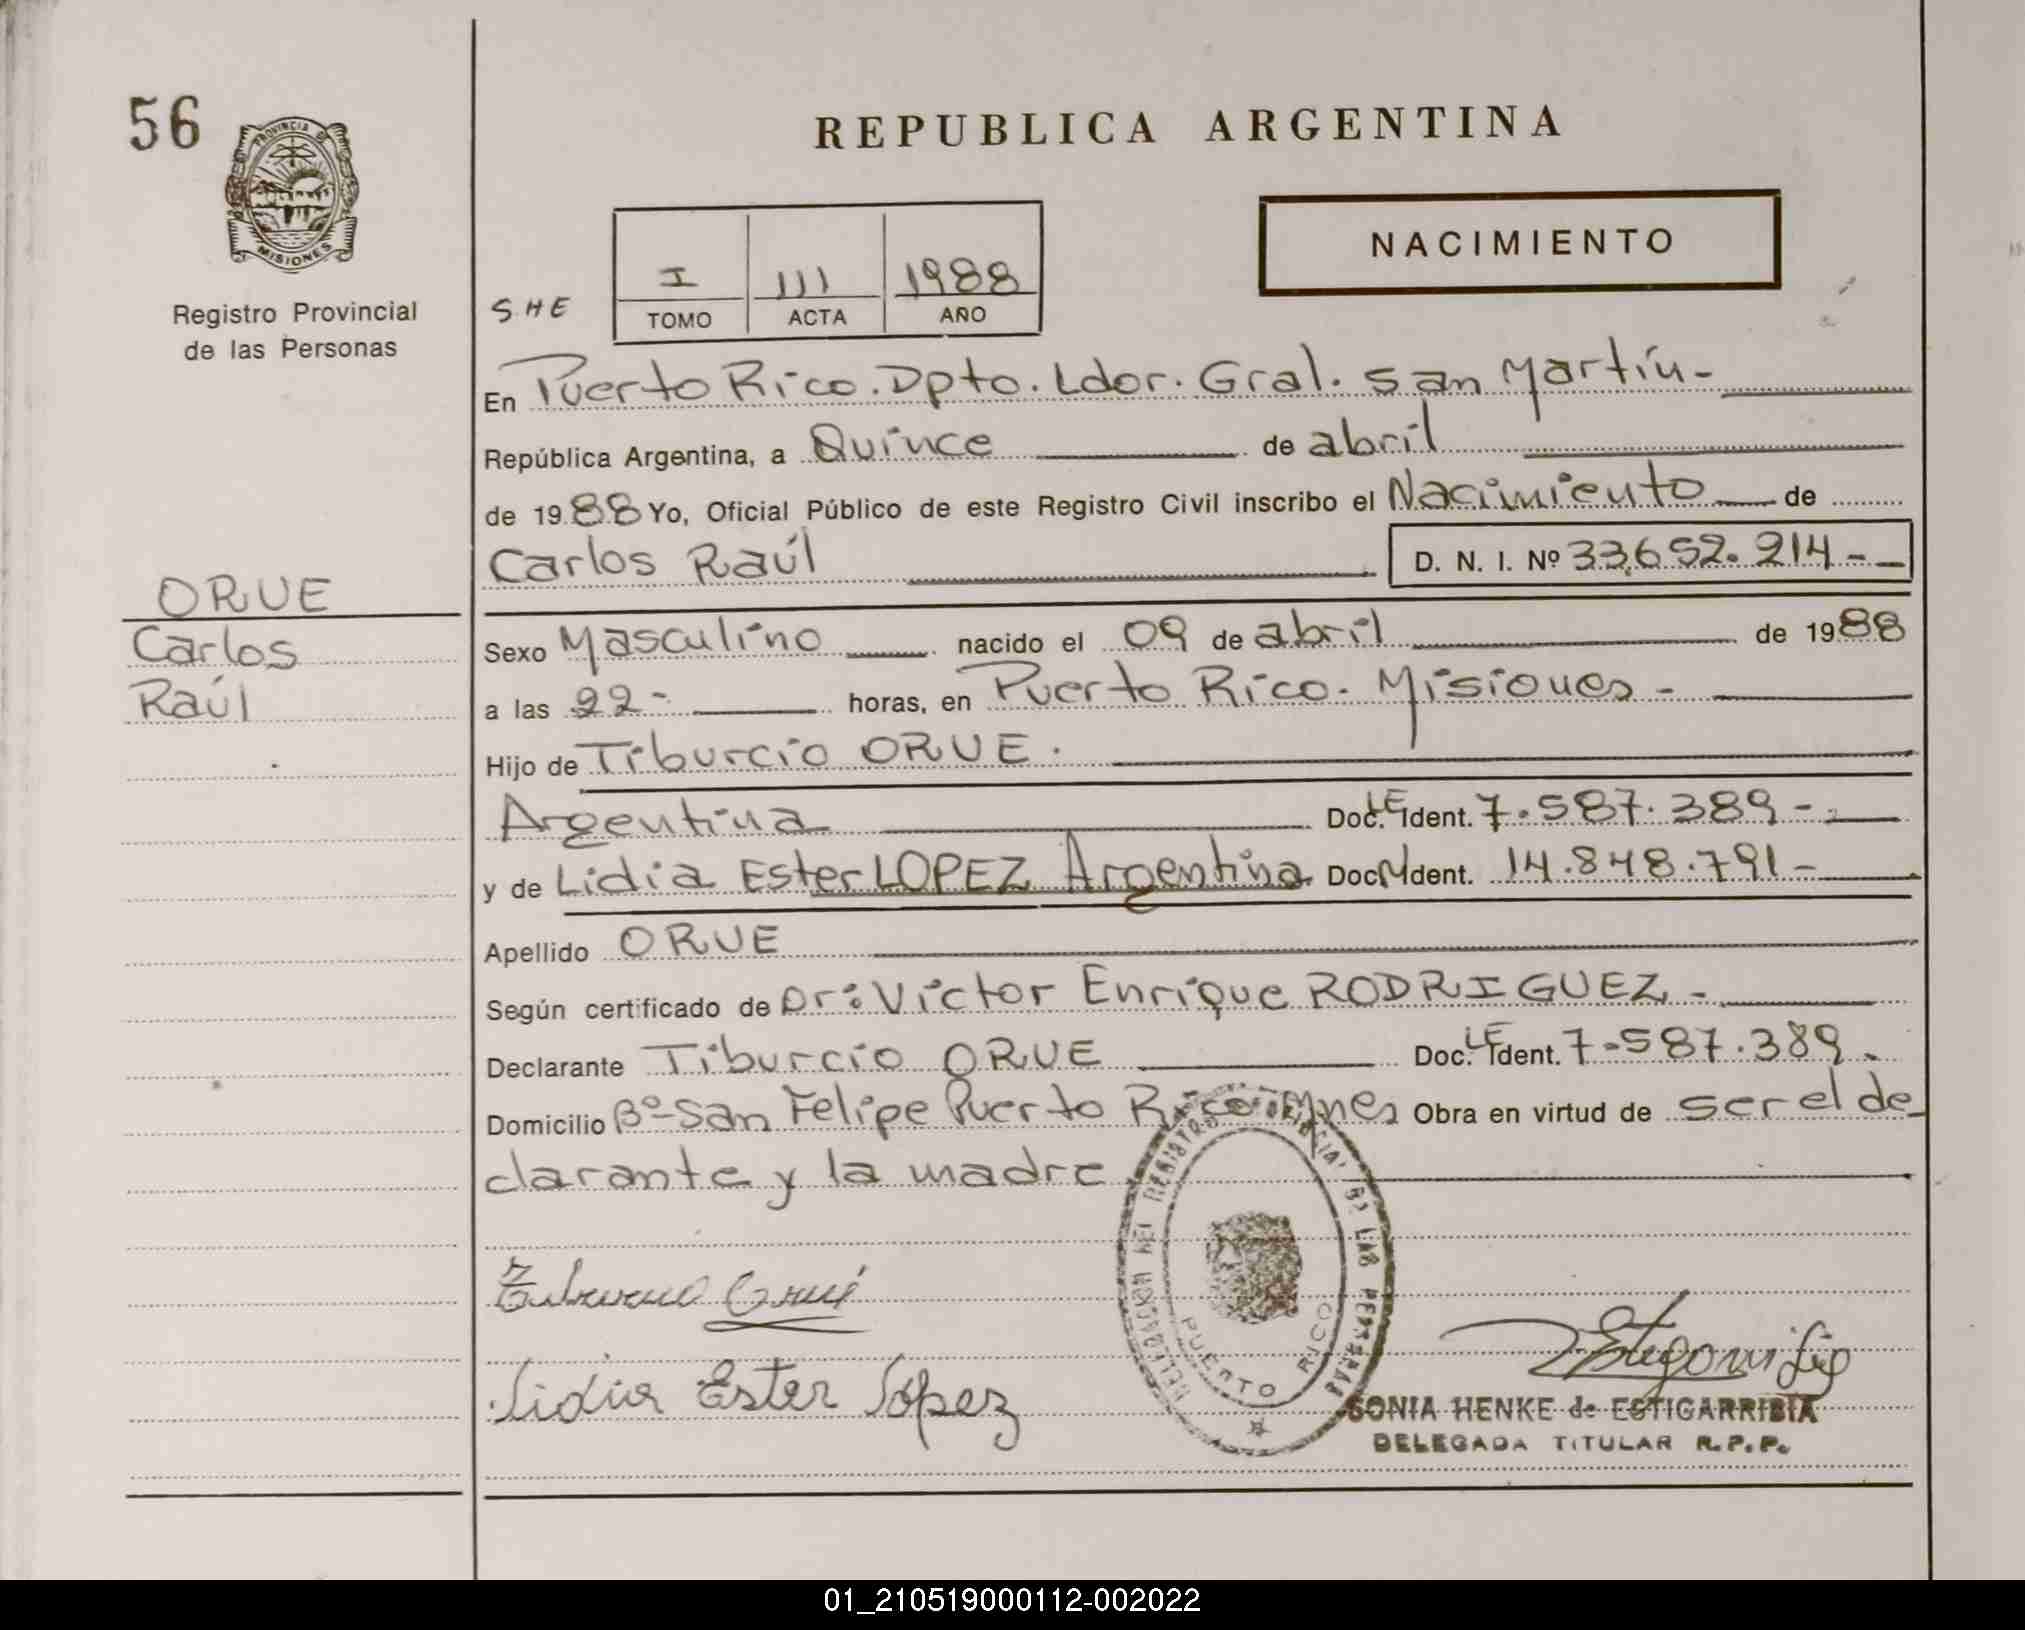 56
REPUBLICA ARGENTINA
PROVINCIA DE
MISIONES
NACIMIENTO
Registro Provincial
de las Personas
SHE
I 111 1988
TOMO ACTA AÑO
En Puerto Rico. Dpto. Ldor. Gral. San Martín-
República Argentina, a Quince de abril
de 1988 Yo, Oficial Público de este Registro Civil inscribo el Nacimiento de
Carlos Raúl D. N. I. Nº 33.652.214-
ORUE
Carlos
Raúl
Sexo Masculino nacido el 09 de abril de 1988
a las 22- horas, en Puerto Rico. Misiones-
Hijo de Tiburcio ORUE.
Argentina Doc. LE Ident. 7.587.389-
y de Lidia Ester LOPEZ Argentina Doc. Ident. 14.848.791-
Apellido ORUE
Según certificado de Dr: Victor Enrique RODRIGUEZ.-
Declarante Tiburcio ORUE Doc. LE Ident. 7.587.389.
Domicilio Bº San Felipe Puerto Rico Mnes Obra en virtud de ser el de
clarante y la madre
DELEGACION DEL REGISTRO PROVINCIAL DE LAS PERSONAS
PUERTO RICO
Lidia Ester López
SONIA HENKE de ESTIGARRIBIA
DELEGADA TITULAR R.P.P.
01_210519000112-002022